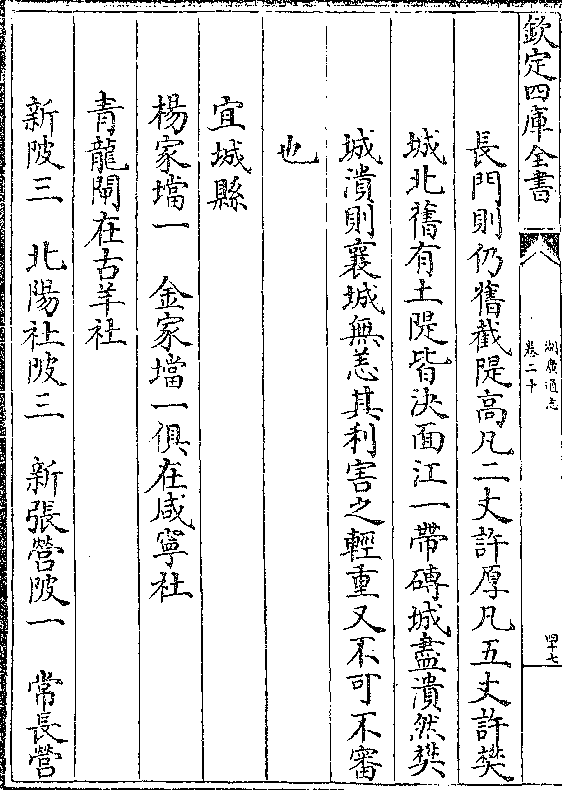 欽定四庫全書
湖廣通志
卷二十
四十七
長門則仍舊截隄高凡二丈許厚凡五丈許樊
城北舊有土隄皆決面江一帶磚城盡潰然樊
城潰則襄城無恙其利害之輕重又不可不審
也
宜城縣
楊家壋一　金家壋一俱在咸寧社
青龍閘在古羊社
新陂三　北陽社陂三　新張營陂一　常長營